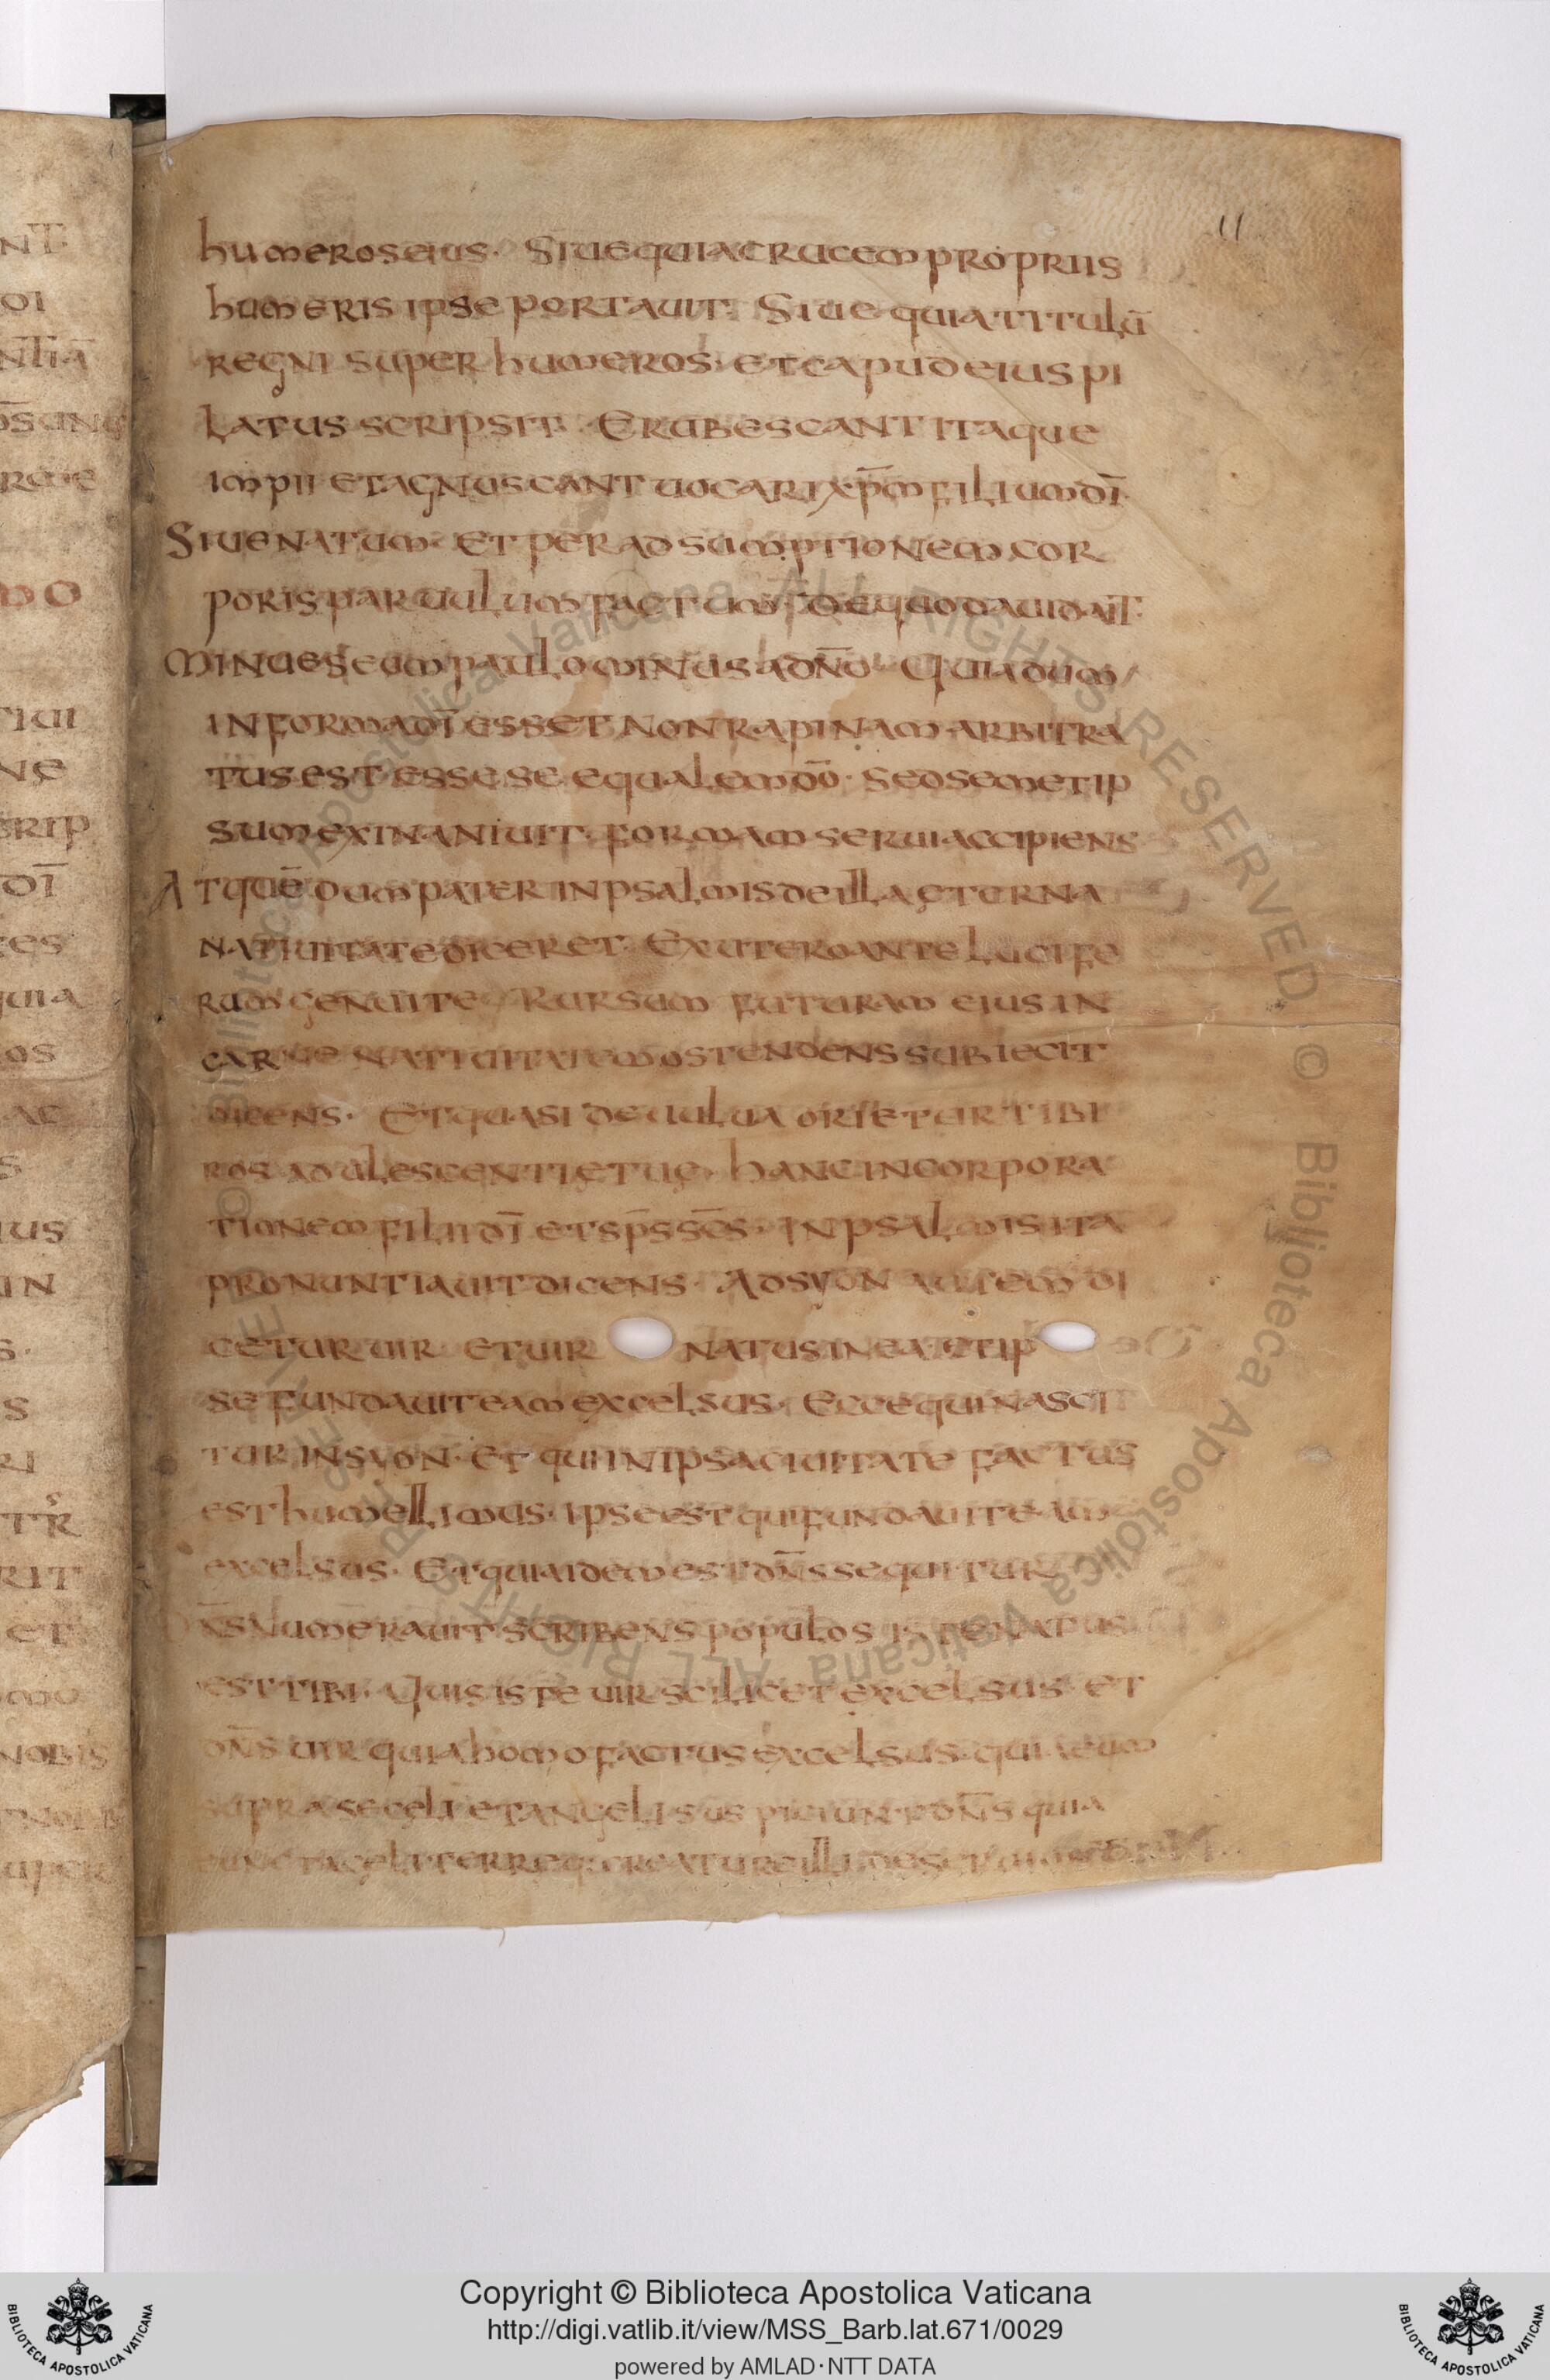 11
humeros eius. Siue quia crucem propriis
humeris ipse portauit. Siue quia titulū
regni super humeros. et capud eius pi
latus scripsit. Erubescant itaque
impii et agnuscant uocari xp̄m filium dī.
Siue natum. et per adsumptionem cor
poris paruulum factum. De quo dauid ait.
Minues eum paulo minus ad n̄o. Quia dum
in forma dī esset. non rapinam arbitra
tus est esse se equalem dō. sed semetip
sum exinaniuit. formam serui accipiens
Atque dum pater in psalmis de illa ęterna
natiuitate diceret. Ex utero ante lucife
rum genui te. Rursum futuram eius in
carne natiuitatem ostendens subiecit
dicens. Et quasi de uulua orietur tibi
ros adulescentię tuę. hanc incorpora
tionem filii dī et sp̄s sc̄s. in psalmis ita
pronuntiauit dicens. Ad syon autem di
cetur uir et uir natus in ea. et ip
se fundauit eam excelsus. Ecce qui nasci
tur in syon. et qui in ipsa ciuitate factus
est humellimus. ipse est qui fundauit eam
excelsus. Et quia idem est dn̄s sequitur
n̄s numerauit scribens populos iste natus
est tibi. Quis iste uir scilicet excelsus et
dn̄s uir quia homo factus excelsus. quia eum
supra se celi et angeli dn̄s quia
Copyright © Biblioteca Apostolica Vaticana
http://digi.vatlib.it/view/MSS_Barb.lat.671/0029
powered by AMLAD·NTT DATA
BIBLIOTECA APOSTOLICA VATICANA
BIBLIOTECA APOSTOLICA VATICANA
© Biblioteca Apostolica Vaticana ALL RIGHTS RESERVED